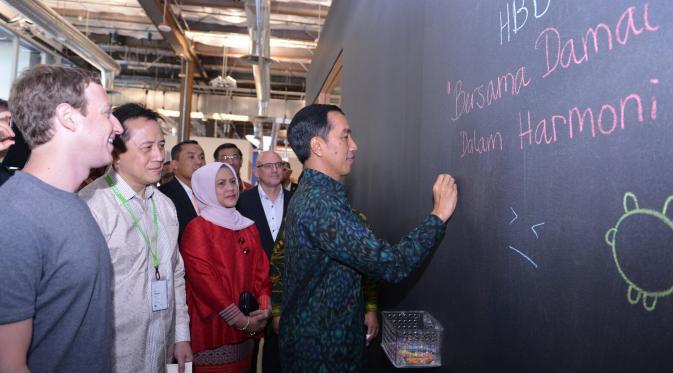 HBD
'Bersama Damai
Dalam Harmoni